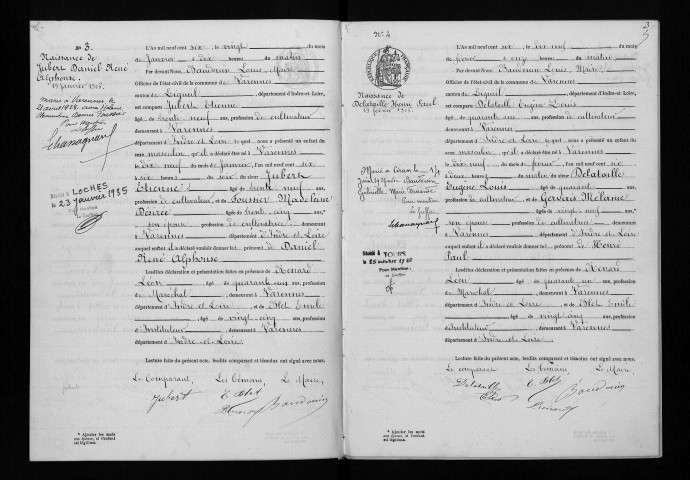 No 3.
Naissance de
Jubert Daniel René
Alphonse.
19 janvier 1906.
Marié à Varennes le
21 avril 1928 avec
Chassagneau
Décédé à LOCHES
le 23 janvier 1985
L'An mil neuf cent six, le vingt du mois
de Janvier à dix heures du matin
Par devant Nous, Baudouin Louis, Maire
Officier de l'état civil de la commune de Varennes
Canton de Ligueil, département d'Indre-et-Loire,
est comparu Jubert Etienne
âgé de trente neuf ans, profession de cultivateur
demeurant à Varennes
département d'Indre et Loire, lequel nous a présenté un enfant du
sexe masculin, qu'il a déclaré être né à Varennes
le dix neuf du mois de janvier, l'an mil neuf cent six
à six heures du soir de lui Jubert
Etienne, âgé de trente neuf ans,
profession de cultivateur et de Toussier Madeleine
Désirée, âgée de trente cinq ans,*
son épouse, profession de cultivatrice, demeurant
à Varennes département d'Indre et Loire
auquel enfant il a déclaré vouloir donner les prénoms de Daniel
René Alphonse
Lesdites déclaration et présentation faites en présence de Renard
Léon, âgé de quarante un ans, profession
de Maréchal, demeurant à Varennes
département d'Indre et Loire, et de Blet Emile
âgé de vingt cinq ans, profession
d'Instituteur, demeurant Varennes
département d'Indre et Loire.
Lecture faite du présent acte, lesdits comparant et témoins ont signé avec nous.
Le Comparant, Les Témoins, Le Maire,
Jubert E Blet
Renard Baudouin
* Ajouter les mots
son épouse, si l'enfant
est légitime.
3
No 4
Naissance de
Delataille Henri Paul
19 février 1906.
Chassagneau
Décédé à TOURS
le 25 octobre 1982
Pour Mention
L'An mil neuf cent six, le dix neuf du mois
de février à onze heures du matin
Par devant Nous, Baudouin Louis, Maire,
Officier de l'état civil de la commune de Varennes
Canton de Ligueil, département d'Indre-et-Loire,
est comparu Delataille Eugène Louis
âgé de quarante ans, profession de cultivateur
demeurant à Varennes
département d'Indre et Loire, lequel nous a présenté un enfant du
sexe masculin, qu'il a déclaré être né à Varennes
le dix neuf du mois de février, l'an mil neuf cent six
à deux heures du matin de lui Delataille
Eugène Louis, âgé de quarante ans,
profession de cultivateur et de Gervais Mélanie
âgée de vingt neuf ans,*
son épouse, profession de cultivatrice, demeurant
à Varennes département d'Indre et Loire
auquel enfant il a déclaré vouloir donner les prénoms de Henri
Paul
Lesdites déclaration et présentation faites en présence de Renard
Léon, âgé de quarante un ans, profession
de Maréchal, demeurant à Varennes
département d'Indre et Loire, et de Blet Emile
âgé de vingt cinq ans, profession
d'Instituteur, demeurant à Varennes
département d'Indre et Loire.
Lecture faite du présent acte, lesdits comparant et témoins ont signé avec nous.
Le comparant Les Témoins, Le Maire,
Delataille E. Blet Baudouin
Renard
* Ajouter les mots
son épouse, si l'enfant
est légitime.